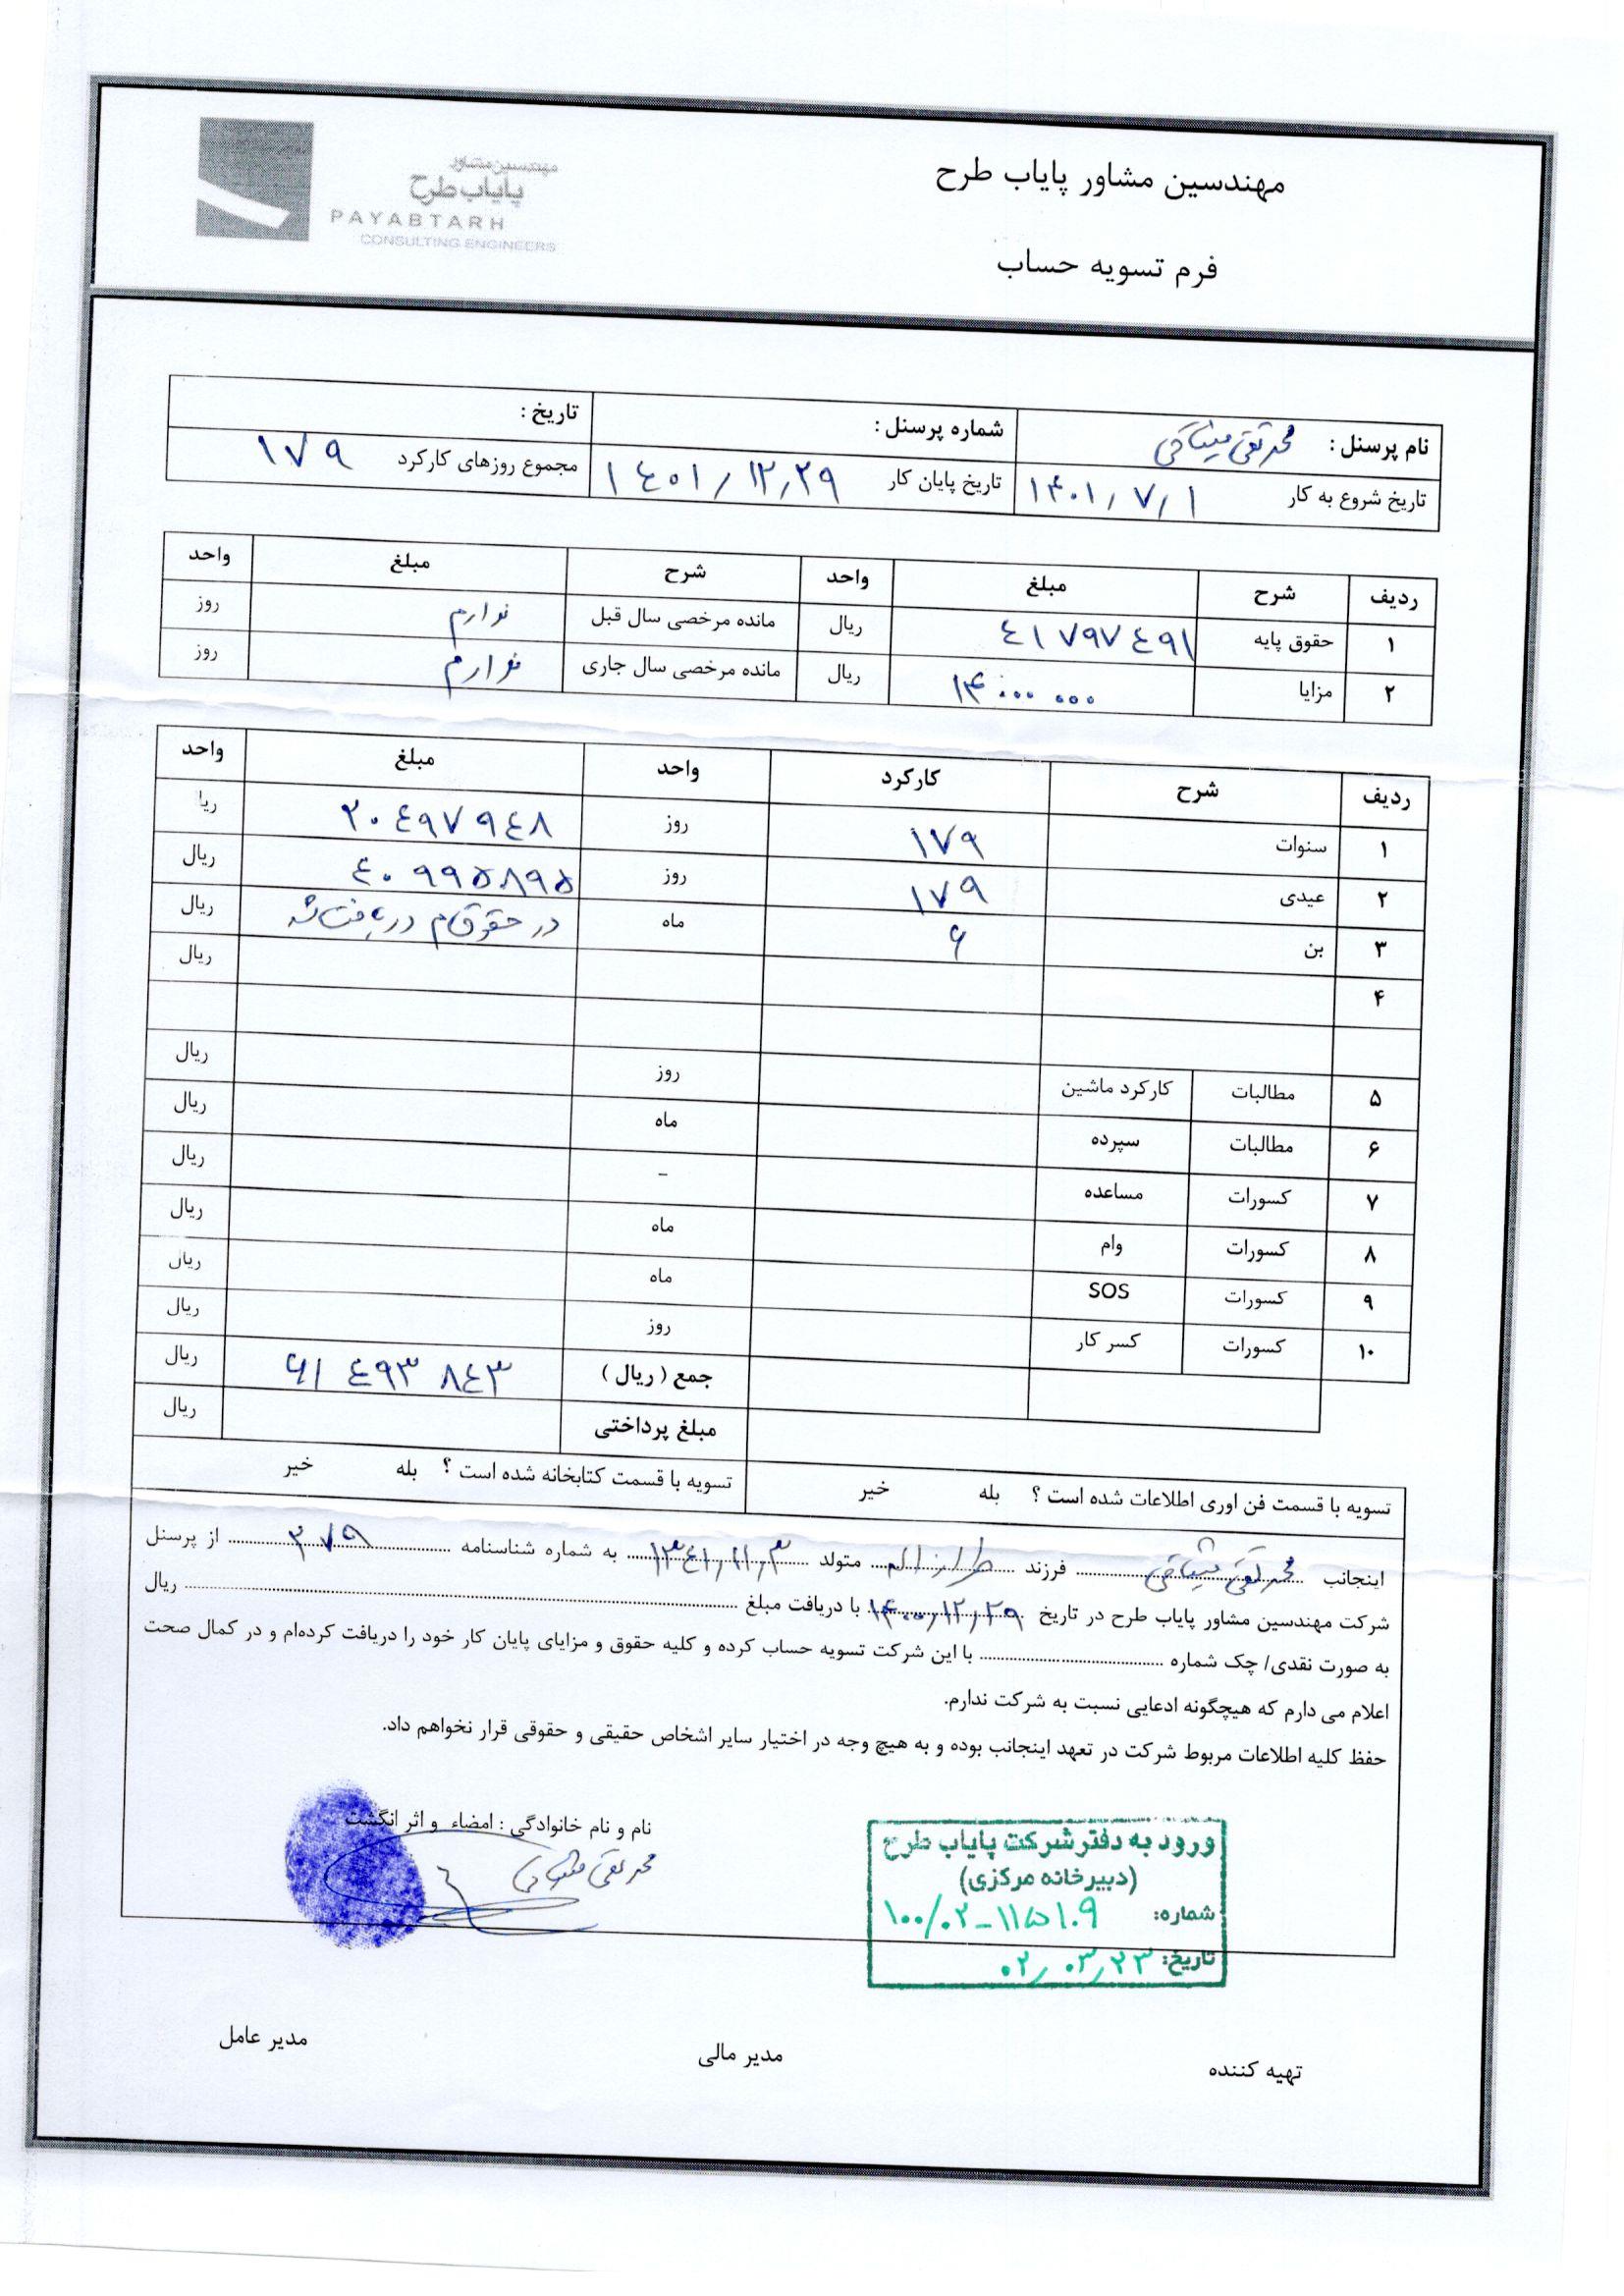 مهندسین مشاور پایاب طرح
مهندسین مشاور
پایاب طرح
PAYABTARH
CONSULTING ENGINEERS
فرم تسویه حساب
نام پرسنل : محمد تقی شماره پرسنل : تاریخ :
تاریخ شروع به کار ۱۴۰۱/۷/۱ تاریخ پایان کار ۱۴۰۱/۱۲/۲۹ مجموع روزهای کارکرد ۱۷۹
ردیف شرح مبلغ واحد شرح مبلغ واحد
۱ حقوق پایه ۴۱۷۹۷۴۹۱ ریال مانده مرخصی سال قبل ندارم روز
۲ مزایا ۱۴۰۰۰۰۰۰ ریال مانده مرخصی سال جاری ندارم روز
ردیف شرح کارکرد واحد مبلغ واحد
۱ سنوات ۱۷۹ روز ۲۰۴۹۷۹۴۸ ریا
۲ عیدی ۱۷۹ روز ۴۰۹۹۵۸۹۵ ریال
۳ بن ۶ ماه در حقوقم دریافت شد ریال
۴ ریال
۵ مطالبات کارکرد ماشین روز ریال
۶ مطالبات سپرده ماه ریال
۷ کسورات مساعده - ریال
۸ کسورات وام ماه ریال
۹ کسورات SOS ماه ریال
۱۰ کسورات کسر کار روز ریال
جمع ( ریال ) ۶۱۴۹۳۸۴۳ ریال
مبلغ پرداختی ریال
تسویه با قسمت فن اوری اطلاعات شده است ؟ بله خیر تسویه با قسمت کتابخانه شده است ؟ بله خیر
اینجانب محمد تقی فرزند متولد ۱۳۴۱/۱۱/۳ به شماره شناسنامه ۳۷۹ از پرسنل
شرکت مهندسین مشاور پایاب طرح در تاریخ ۱۴۰۰/۱۲/۲۹ با دریافت مبلغ ریال
به صورت نقدی/ چک شماره با این شرکت تسویه حساب کرده و کلیه حقوق و مزایای پایان کار خود را دریافت کرده‌ام و در کمال صحت
اعلام می دارم که هیچگونه ادعایی نسبت به شرکت ندارم.
حفظ کلیه اطلاعات مربوط شرکت در تعهد اینجانب بوده و به هیچ وجه در اختیار سایر اشخاص حقیقی و حقوقی قرار نخواهم داد.
نام و نام خانوادگی : امضاء و اثر انگشت
محمد تقی
ورود به دفتر شرکت پایاب طرح
(دبیرخانه مرکزی)
شماره: ۱۰۰/۰۲-۱۱۵۱۰۹
تاریخ: ۰۲/۰۳/۲۳
تهیه کننده مدیر مالی مدیر عامل